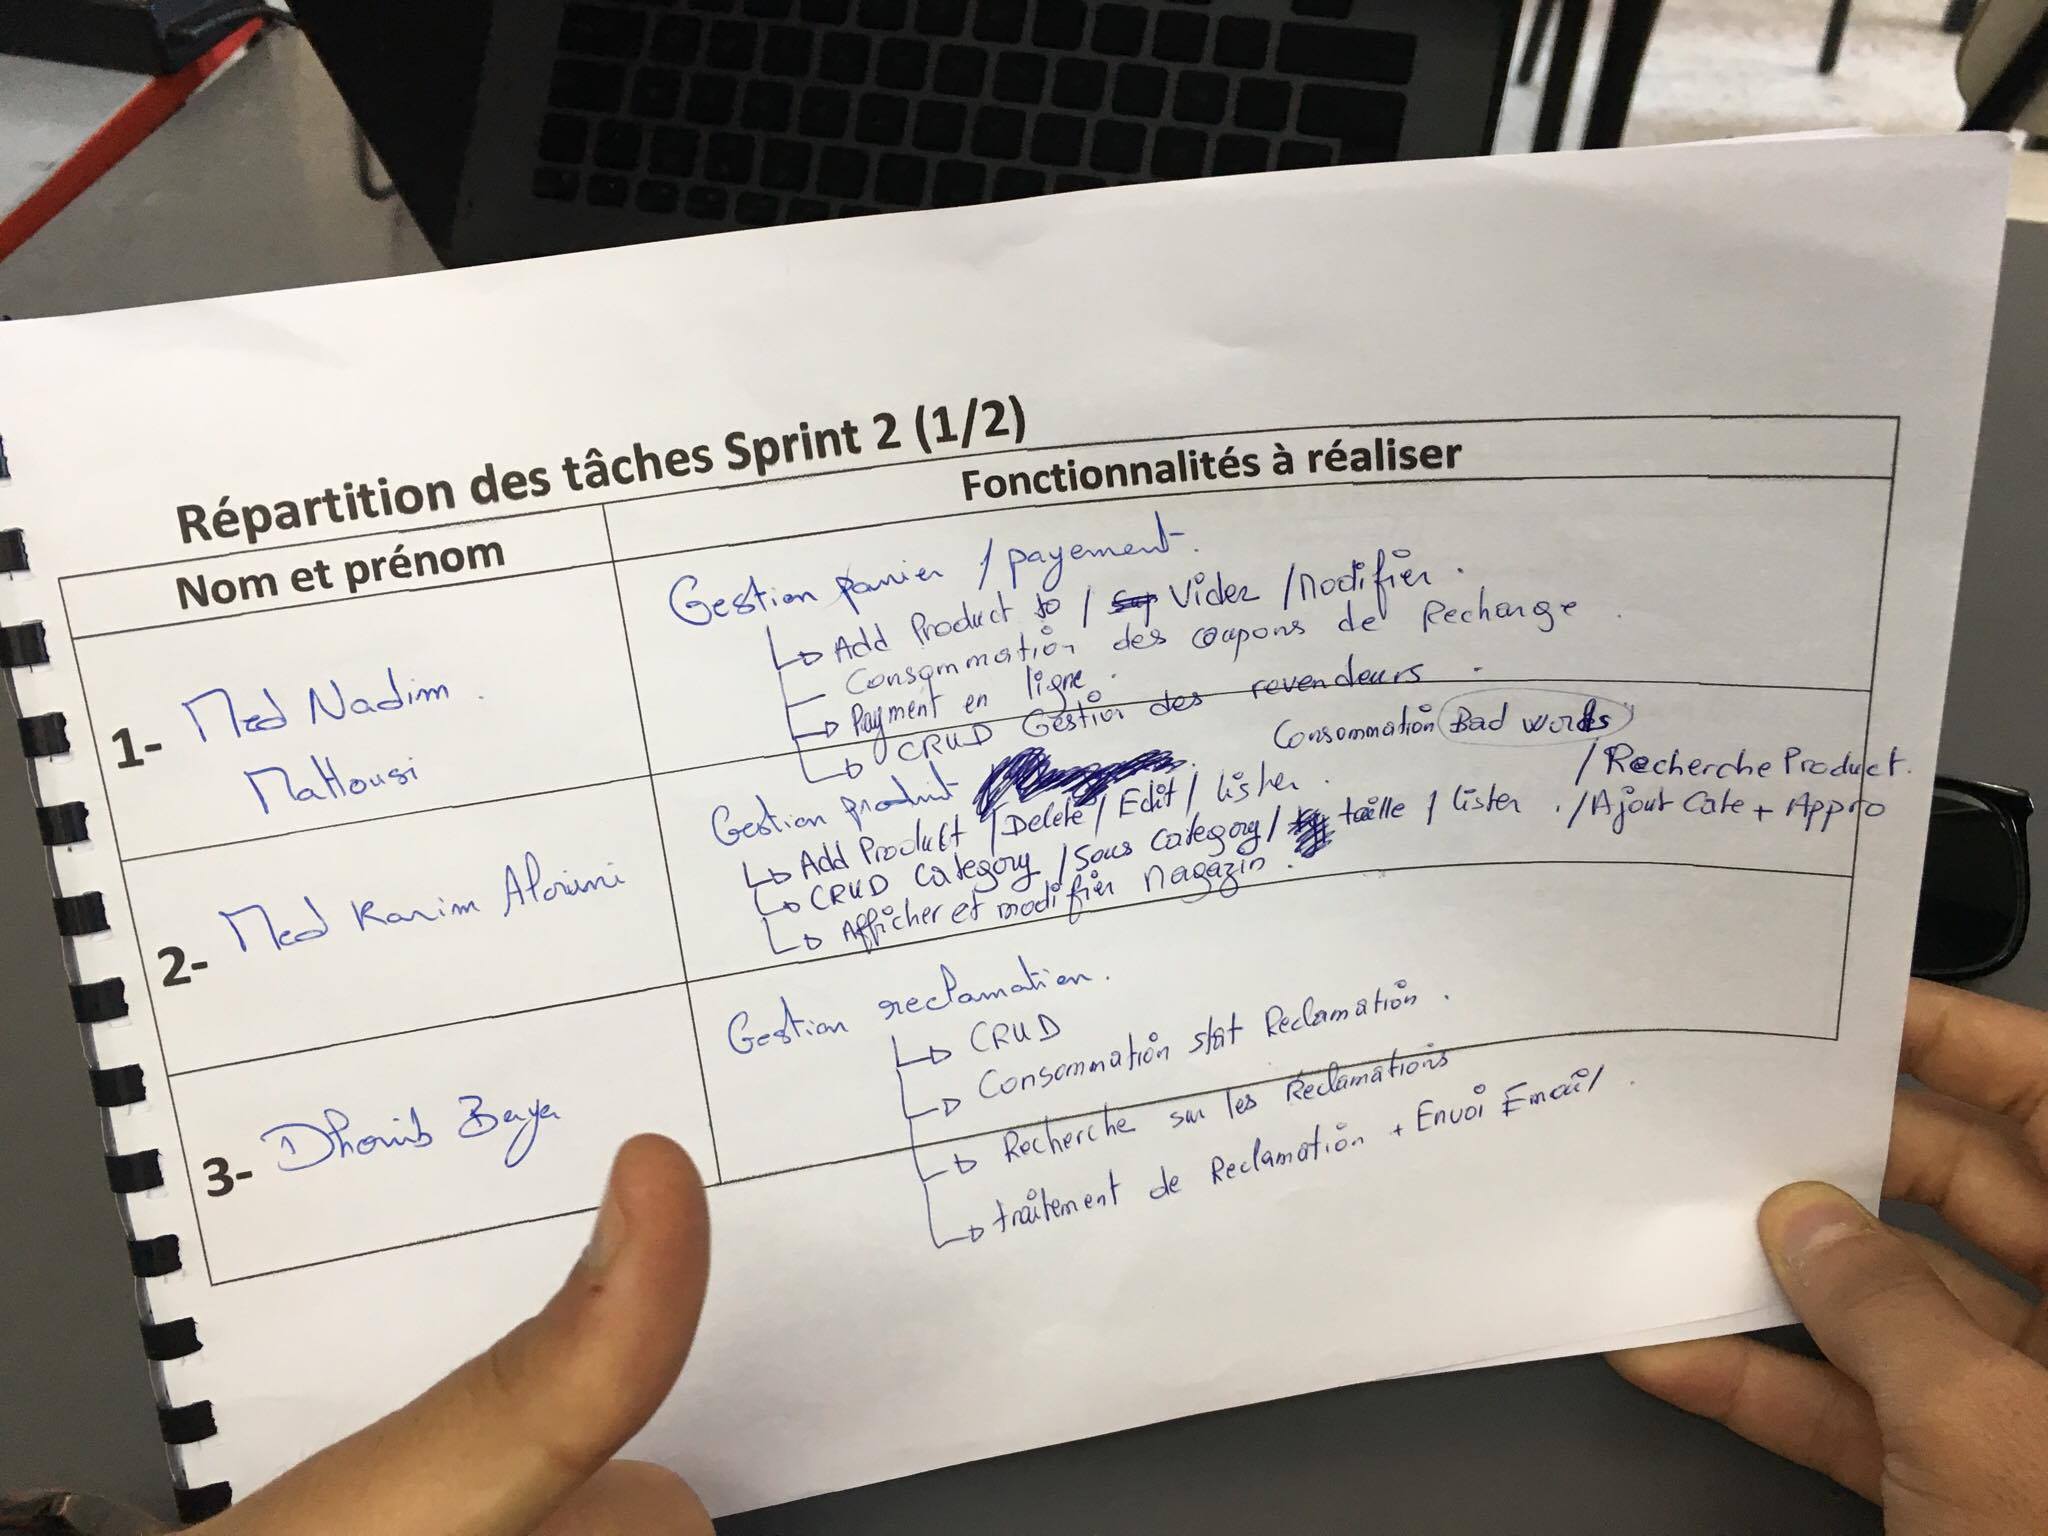 Répartition des tâches Sprint 2 (1/2)
Nom et prénom
Fonctionnalités à réaliser
1- Med Nadim
Gestion panier / payement.
Add Product to / Vider / Modifier.
Consommation des coupons de Recharge.
Payment en ligne.
CRUD Gestion des revendeurs.
2- Med Karim
Gestion produit
Consommation Bad words
Add Product / Delete / Edit / lister. / Recherche Product.
CRUD Category / Sous Category / taille / lister. / Ajout Cate + Appro
Afficher et modifier Magazin.
3- Dhouib Baya
Gestion reclamation.
CRUD
Consommation stat Reclamation.
Recherche sur les Reclamations
traitement de Reclamation + Envoi Email.